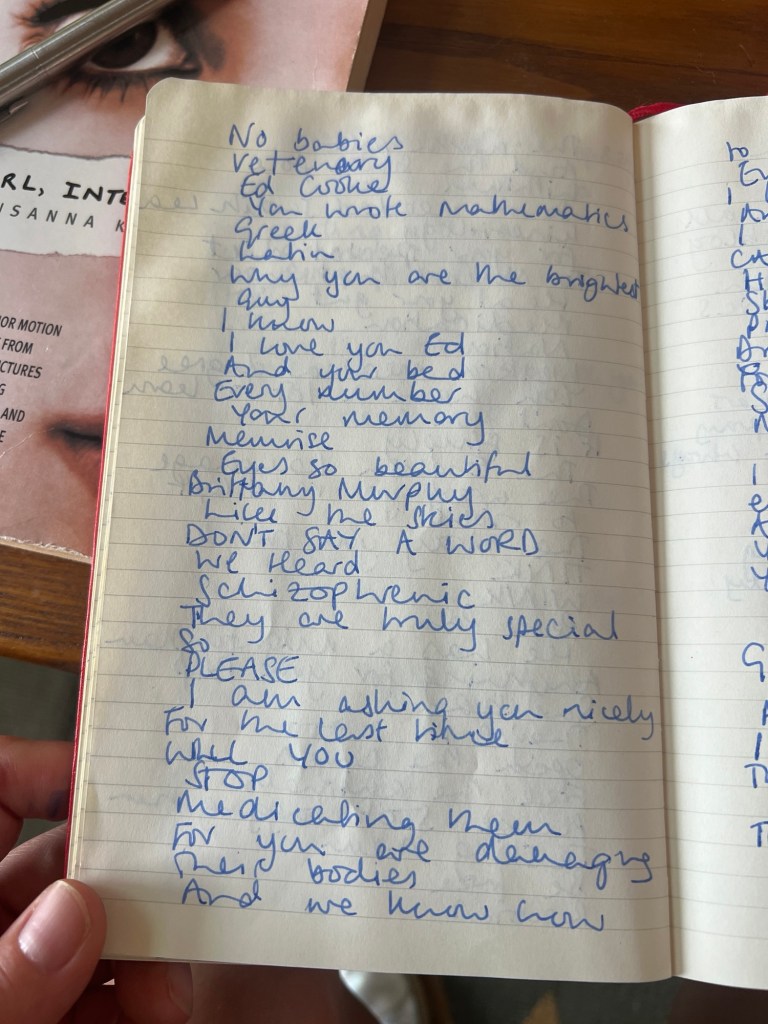 RL, INTE
USANNA K
OR MOTION
FROM
CTURES
G
AND
E
No babies
Vetenary
Ed Cooke
You wrote mathematics
Greek
Latin
Why you are the brightest
guy
I know
I love you Ed
And your bed
Every number
Your memory
Memrise
Eyes so beautiful
Brittany Murphy
Like the skies
DON'T SAY A WORD
We Heard
Schizophrenic
They are truly special
So
PLEASE
I am asking you nicely
For the last time
WILL YOU
STOP
Medicating them
For you are damaging
Their bodies
And we know how